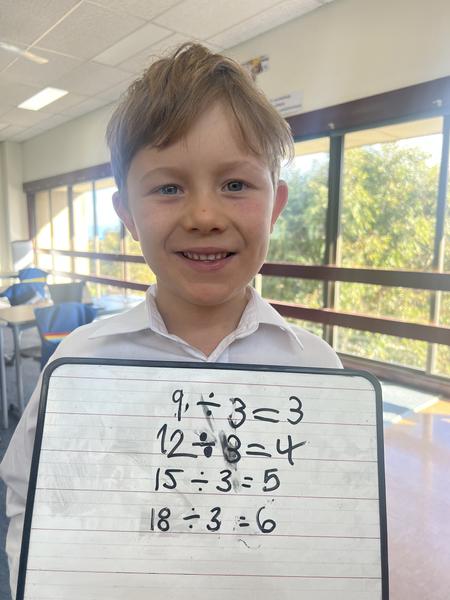 9 ÷ 3 = 3
12 ÷ 3 = 4
15 ÷ 3 = 5
18 ÷ 3 = 6